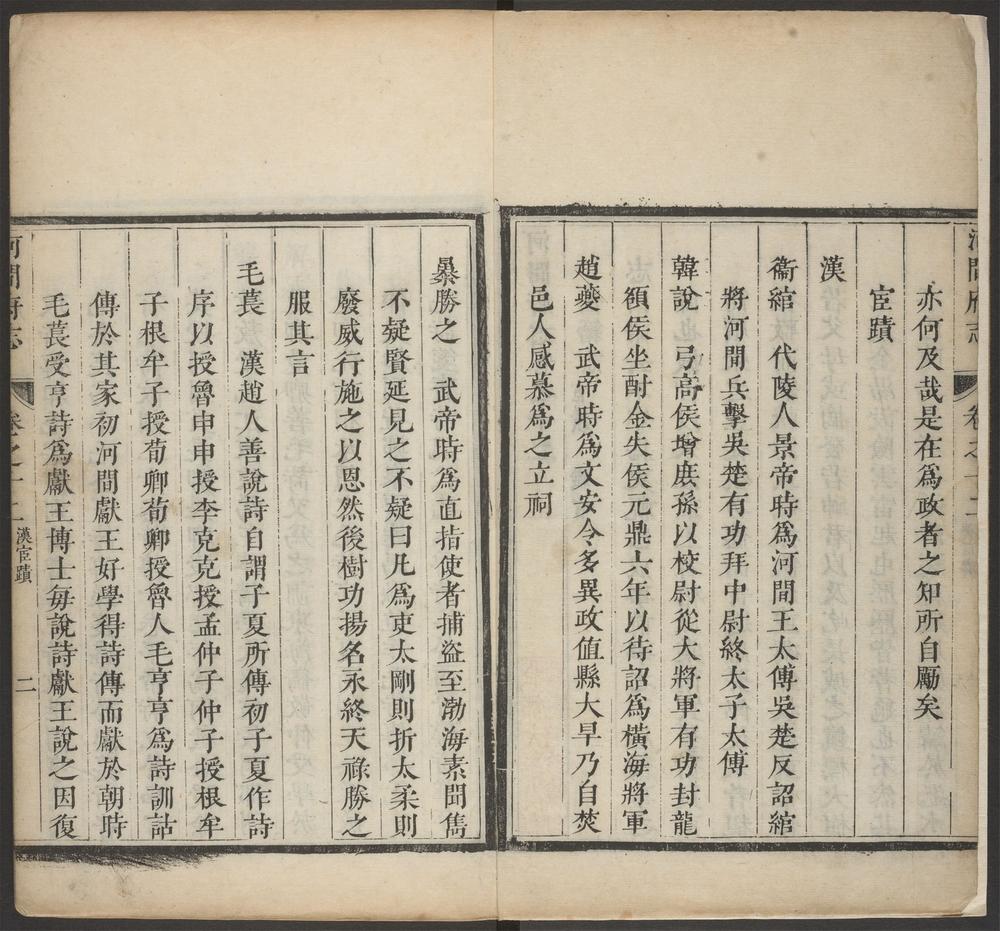 亦何及哉是在爲政者之知所自勵矣
宦蹟
漢
衞綰 代陵人景帝時爲河間王太傅吳楚反詔綰
將河間兵擊吳楚有功拜中尉終太子太傅
韓說 弓高侯增庶孫以校尉從大將軍有功封龍
頟侯坐酎金失侯元鼎六年以待詔爲橫海將軍
趙夔 武帝時爲文安令多異政值縣大旱乃自焚
邑人感慕爲之立祠
暴勝之 武帝時爲直指使者捕盜至渤海素聞雋
不疑賢延見之不疑曰凡爲吏太剛則折太柔則
廢威行施之以恩然後樹功揚名永終天祿勝之
服其言
毛萇 漢趙人善說詩自謂子夏所傳初子夏作詩
序以授魯申申授李克克授孟仲子仲子授根牟
子根牟子授荀卿荀卿授魯人毛亨亨爲詩訓詁
傳於其家初河間獻王好學得詩傳而獻於朝時
毛萇受亨詩爲獻王博士每說詩獻王說之因復
河間府志 卷之十二 漢宦蹟 二